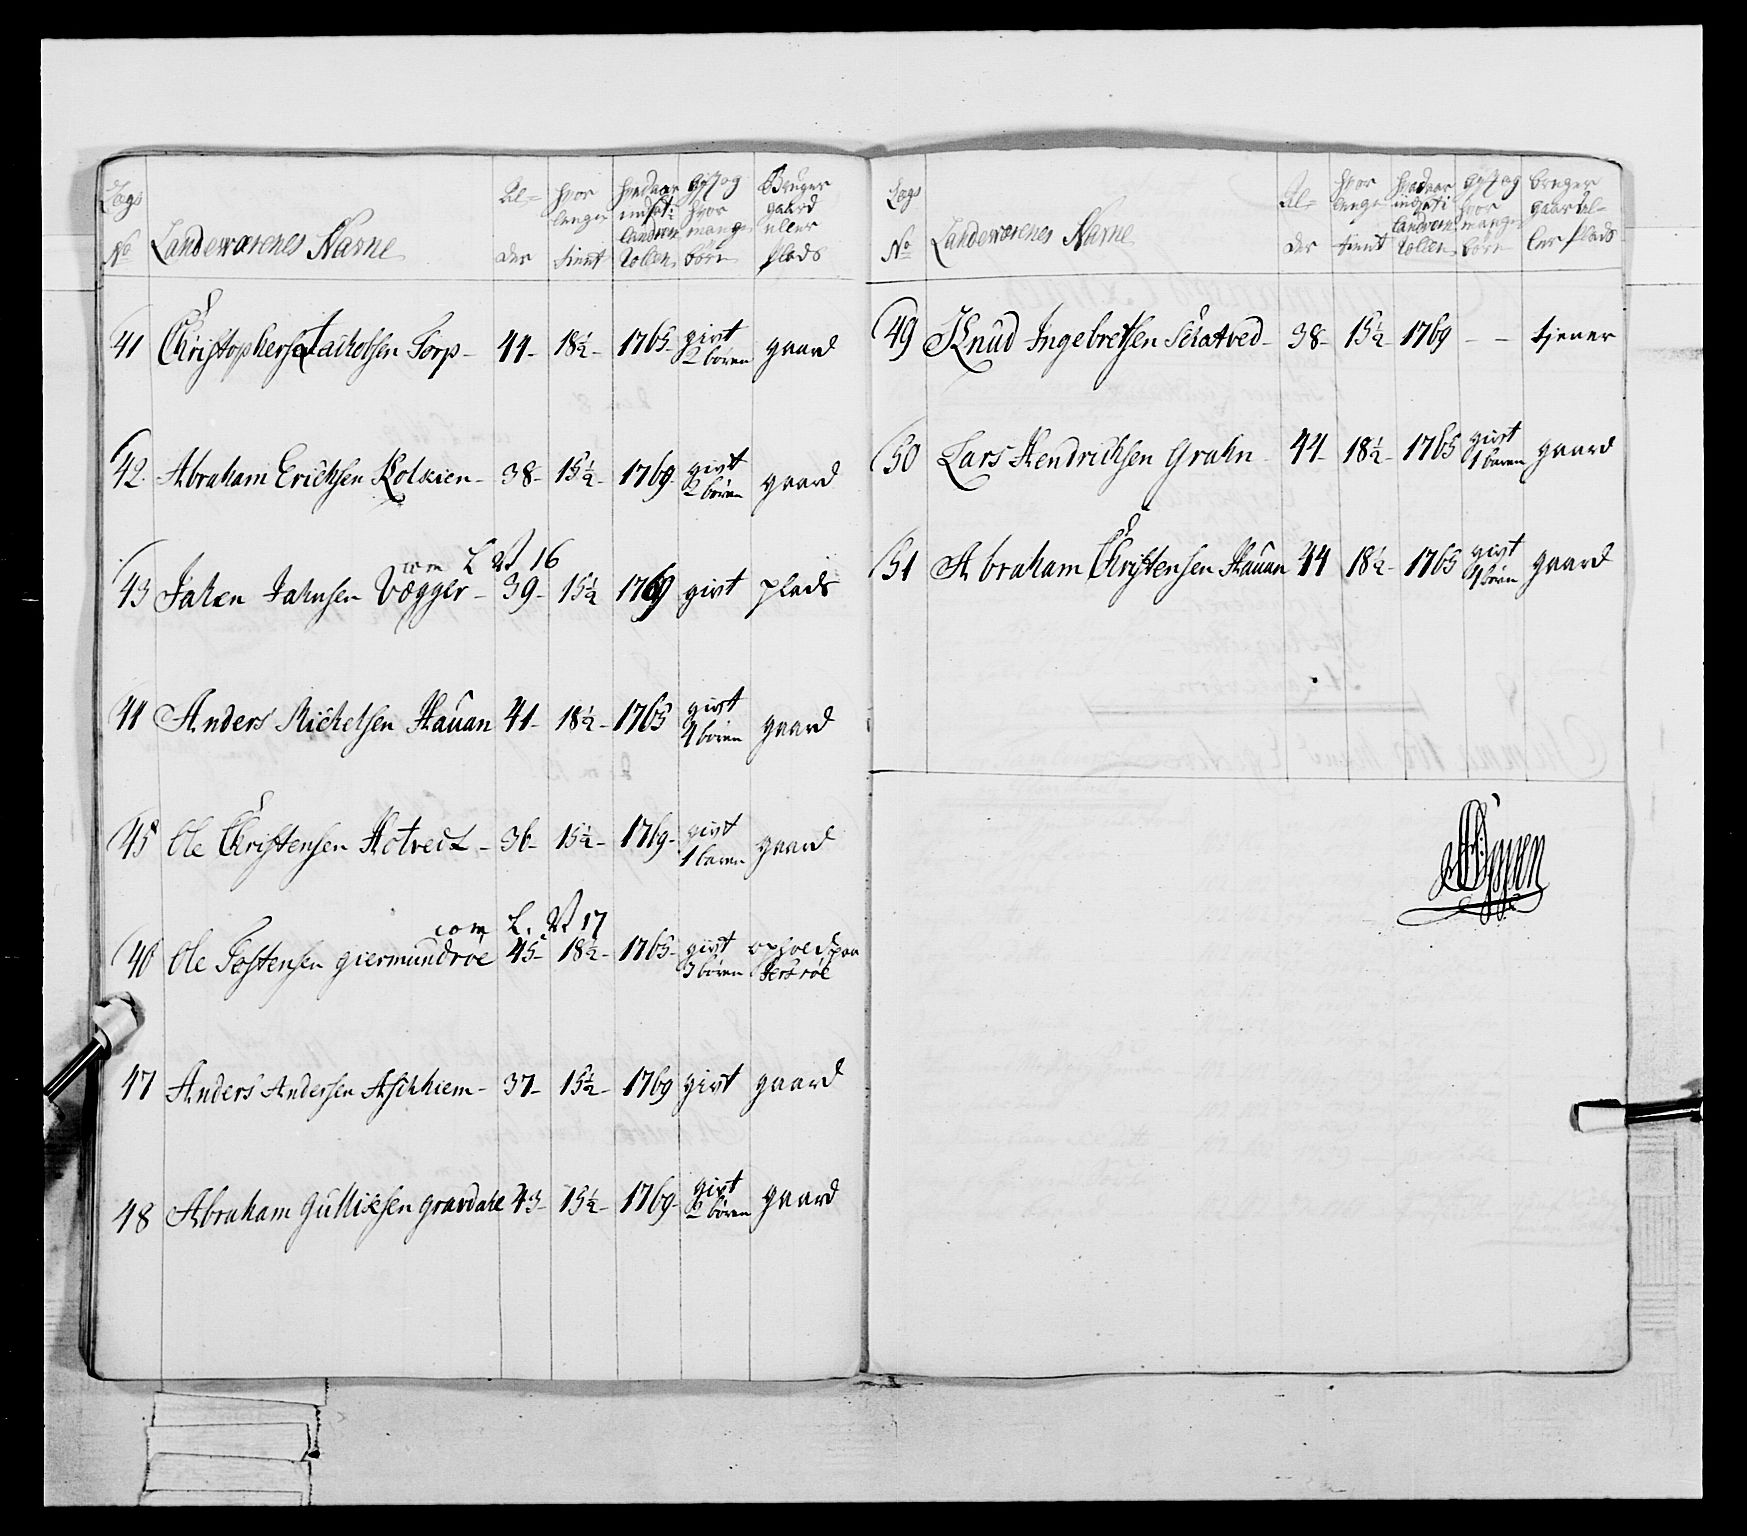 Lægs No Landeværenes Navne Al= der hvor lenge tient hvad aar indsat i landvern Rollen gift og hvor mange børn Bruger gaard eller plads
41 Christopherse Jacholsen Torp - 44 - 18½ - 1765 - givt 2 børen gaard
42. Abraham Erichsen Kolkien - 38 - 15½ - 1769 - givt 2 børen gaard
com L No 16
43 Jahen Jahnsen Vægger - 39 - 15½ 1769 givt plads
44 Anders Michelsen Hauan 41 - 18½ - 1765 givt 4 børen gaard
45 Ole Christensen Hotvedt - 36 - 15½ - 1769 - givt 1 baren gaard
com L. No 17
46 Ole Tostensen giermundrøe 45 - 18½ - 1765 - givt 3 børen ophold paa
47 Anders Andersen Aschhiem - 37 - 15½ - 1769 givt gaard
48 Abraham Gulliksen gravdahl 43 - 15½ - 1769 - givt 2 børen gaard
Lægs No Landeværenes Navne Al= der hvor lenge tient hvad aar indsat i landvern Rollen gift og hvor mange børn bruger gaard el= ler plads
49 Knud Ingebretsen - 38 - 15½ - 1769 - - tjener
50 Lars Hendrichsen Grahn - 44 - 18½ - 1765 givt 1 baren gaard
51 Abraham Christensen Hauan 44 18½ - 1765 givt 4 børn gaard